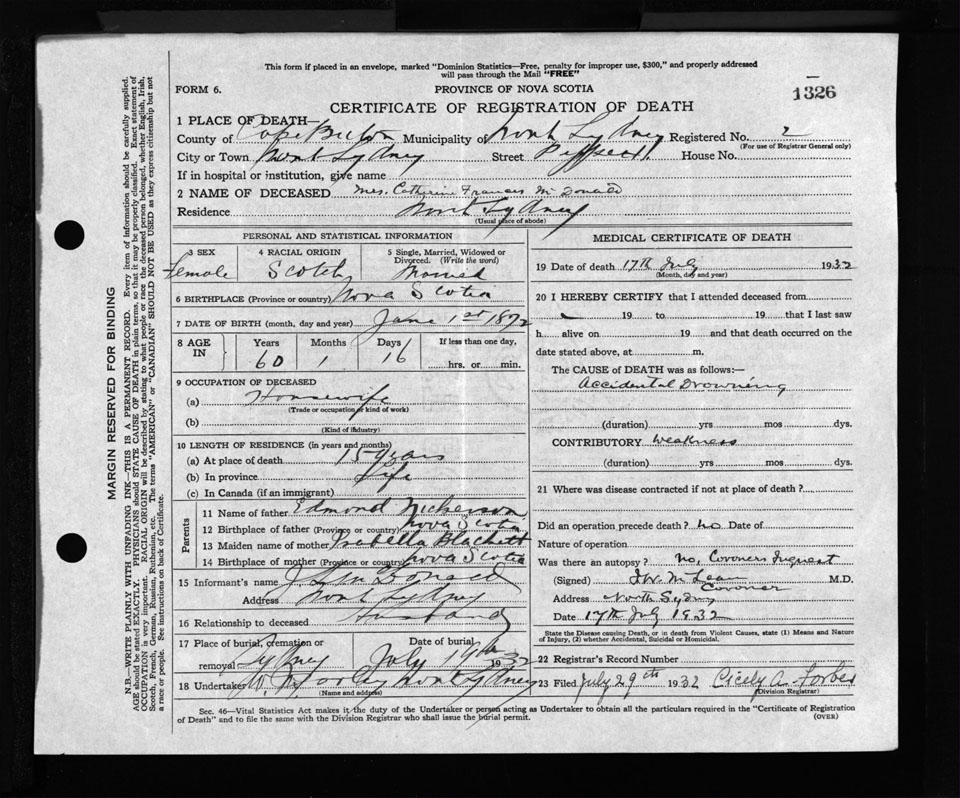 This form if placed in an envelope, marked "Dominion Statistics—Free, penalty for improper use, $300," and properly addressed
will pass through the Mail "FREE"
FORM 6.
PROVINCE OF NOVA SCOTIA
1326
CERTIFICATE OF REGISTRATION OF DEATH
1 PLACE OF DEATH—
County of Cape Breton Municipality of North Sydney Registered No. 2
(For use of Registrar General only)
City or Town North Sydney Street House No.
If in hospital or institution, give name
2 NAME OF DECEASED Mrs. Catherine Frances McDonald
Residence North Sydney
(Usual place of abode)
PERSONAL AND STATISTICAL INFORMATION
3 SEX 4 RACIAL ORIGIN 5 Single, Married, Widowed or
Divorced. (Write the word)
Female Scotch Married
6 BIRTHPLACE (Province or country) Nova Scotia
7 DATE OF BIRTH (month, day and year) June 1st 1872
8 AGE IN Years Months Days If less than one day,
60 1 16 hrs. or min.
9 OCCUPATION OF DECEASED
(a) Housewife
(Trade or occupation or kind of work)
(b)
(Kind of industry)
10 LENGTH OF RESIDENCE (in years and months)
(a) At place of death 15 years
(b) In province Life
(c) In Canada (if an immigrant)
Parents
11 Name of father Edmond Nickerson
12 Birthplace of father (Province or country) Nova Scotia
13 Maiden name of mother Isabella Blackett
14 Birthplace of mother (Province or country) Nova Scotia
15 Informant's name J. L. McDonald
Address North Sydney
16 Relationship to deceased Husband
17 Place of burial, cremation or Date of burial
removal Sydney July 19th 1932
18 Undertaker North Sydney
(Name and address)
MEDICAL CERTIFICATE OF DEATH
19 Date of death 17th July 1932
(Month, day and year)
20 I HEREBY CERTIFY that I attended deceased from
19 to 19 that I last saw
h alive on 19 and that death occurred on the
date stated above, at m.
The CAUSE of DEATH was as follows:—
Accidental Drowning
(duration) yrs mos dys.
CONTRIBUTORY Weakness
(duration) yrs mos dys.
21 Where was disease contracted if not at place of death?
Did an operation precede death? No Date of
Nature of operation
Was there an autopsy? No, Coroners Inquest
(Signed) McLean M.D.
Coroner
Address North Sydney
Date 17th July 1932
State the Disease causing Death, or in death from Violent Causes, state (1) Means and Nature
of Injury, (2) whether Accidental, Suicidal or Homicidal.
22 Registrar's Record Number
23 Filed July 29th 1932 Cicely A. Forbes
(Division Registrar)
Sec. 46—Vital Statistics Act makes it the duty of the Undertaker or person acting as Undertaker to obtain all the particulars required in the "Certificate of Registration
of Death" and to file the same with the Division Registrar who shall issue the burial permit.
(OVER)
MARGIN RESERVED FOR BINDING
N.B.—WRITE PLAINLY WITH UNFADING INK—THIS IS A PERMANENT RECORD. Every item of information should be carefully supplied.
AGE should be stated EXACTLY. PHYSICIANS should STATE CAUSE OF DEATH in plain terms, so that it may be properly classified. Exact statement of
OCCUPATION is very important. RACIAL ORIGIN will be described by stating to what people or race the deceased person belonged, whether English, Irish,
Scotch, French, German, Russian, Ruthenian, etc. The terms "AMERICAN" or "CANADIAN" SHOULD NOT BE USED as they express citizenship but not
a race or people. See instructions on back of Certificate.